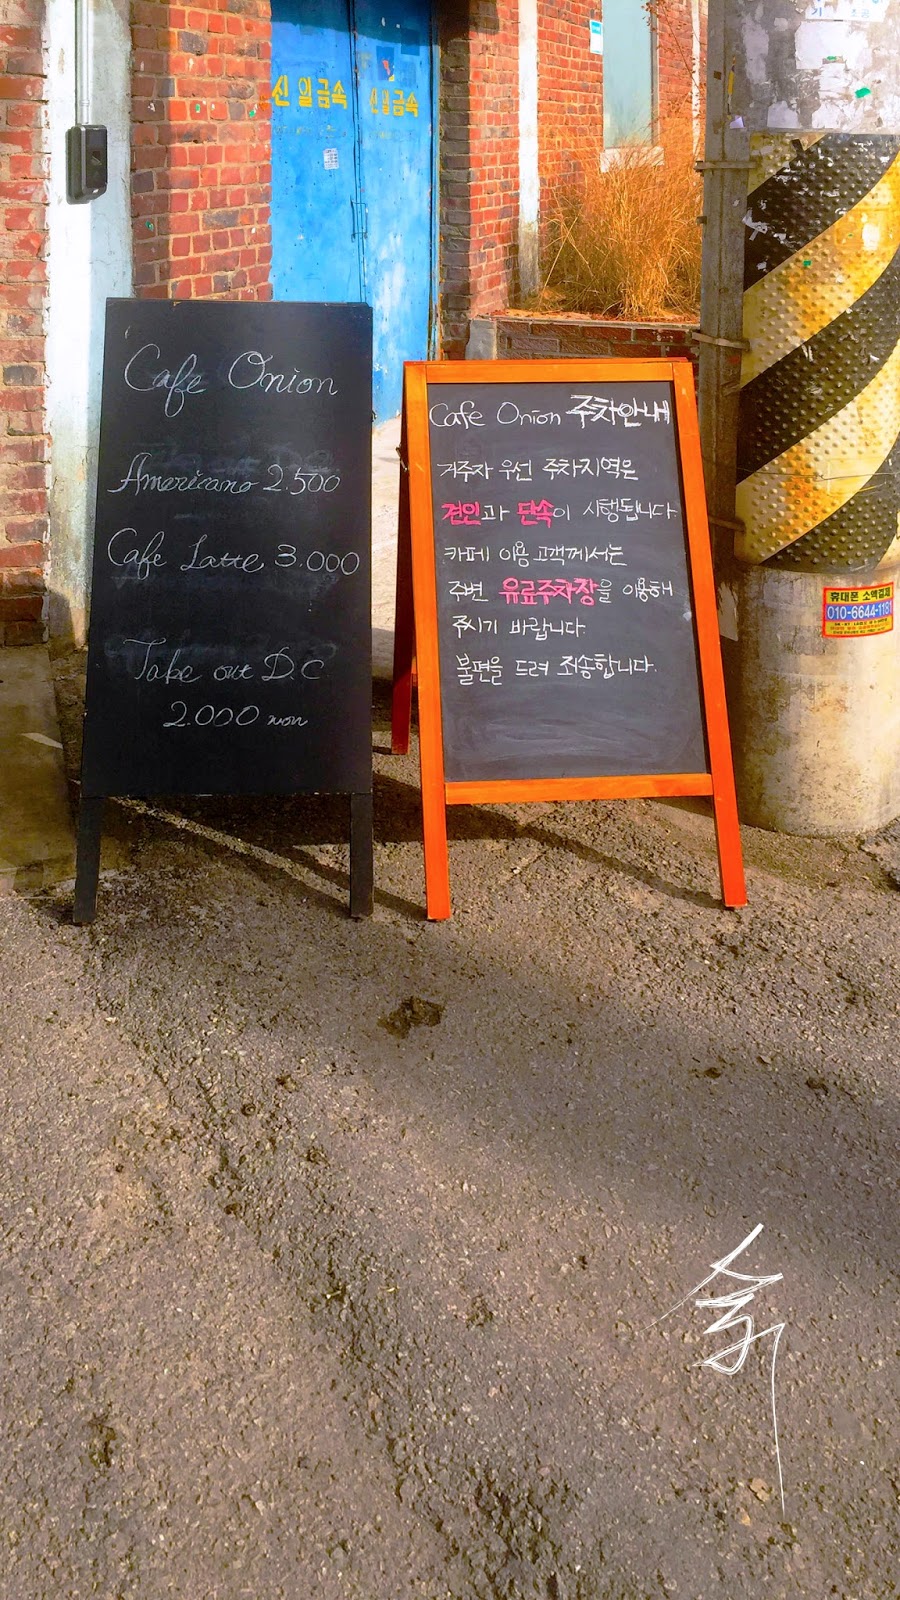 신일금속
신일금속
Cafe Onion
Americano 2.500
Cafe Latte 3.000
Take out D.C
2.000 won
Cafe Onion 주차안내
거주자 우선 주차지역은
견인과 단속이 시행됩니다.
카페 이용고객께서는
주변 유료주차장을 이용해
주시기 바랍니다.
불편을 드려 죄송합니다.
휴대폰 소액결제
010-6644-1181